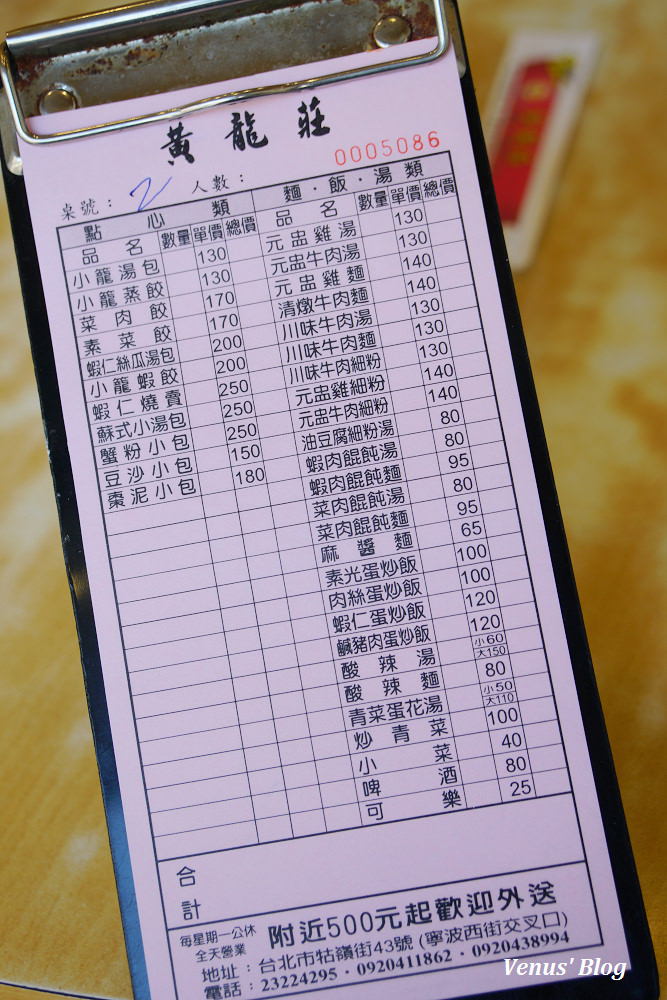 黃龍莊
0005086
桌號：2 人數：
點心類 麵·飯·湯類
品名 數量 單價 總價 品名 數量 單價 總價
小籠湯包 130 元盅雞湯 130
小籠蒸餃 130 元盅牛肉湯 130
菜肉餃 170 元盅雞麵 140
素菜餃 170 清燉牛肉麵 140
蝦仁絲瓜湯包 200 川味牛肉湯 130
小籠蝦餃 200 川味牛肉麵 130
蝦仁燒賣 250 川味牛肉細粉 130
蘇式小湯包 250 元盅雞細粉 140
蟹粉小包 250 元盅牛肉細粉 140
豆沙小包 150 油豆腐細粉湯 80
棗泥小包 180 蝦肉餛飩湯 80
蝦肉餛飩麵 95
菜肉餛飩湯 80
菜肉餛飩麵 95
麻醬麵 65
素光蛋炒飯 100
肉絲蛋炒飯 100
蝦仁蛋炒飯 120
鹹豬肉蛋炒飯 120
酸辣湯 小60 大150
酸辣麵 80
青菜蛋花湯 小50 大110
炒青菜 100
小菜 40
啤酒 80
可樂 25
合計
每星期一公休
全天營業
附近500元起歡迎外送
地址：台北市牯嶺街43號（寧波西街交叉口）
電話：23224295·0920411862·0920438994
Venus' Blog